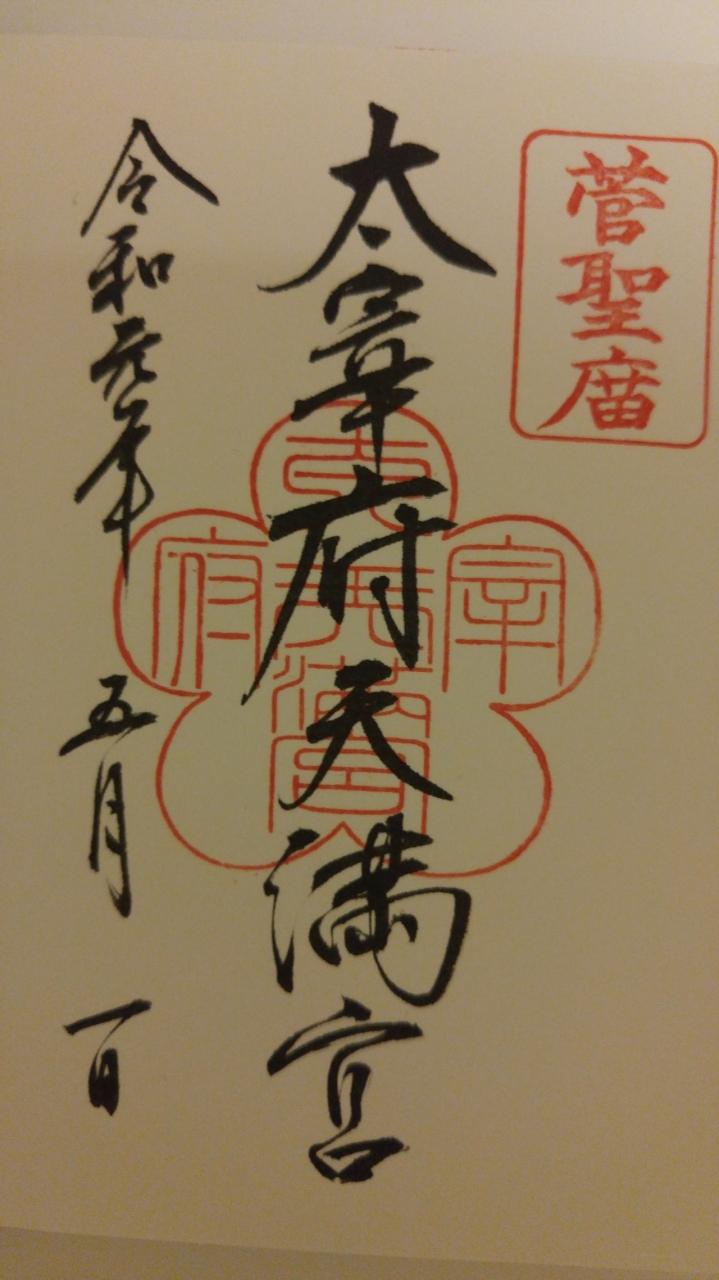 菅聖庿
太宰府天満宮
太宰府
天満宮
令和元年 五月 一日